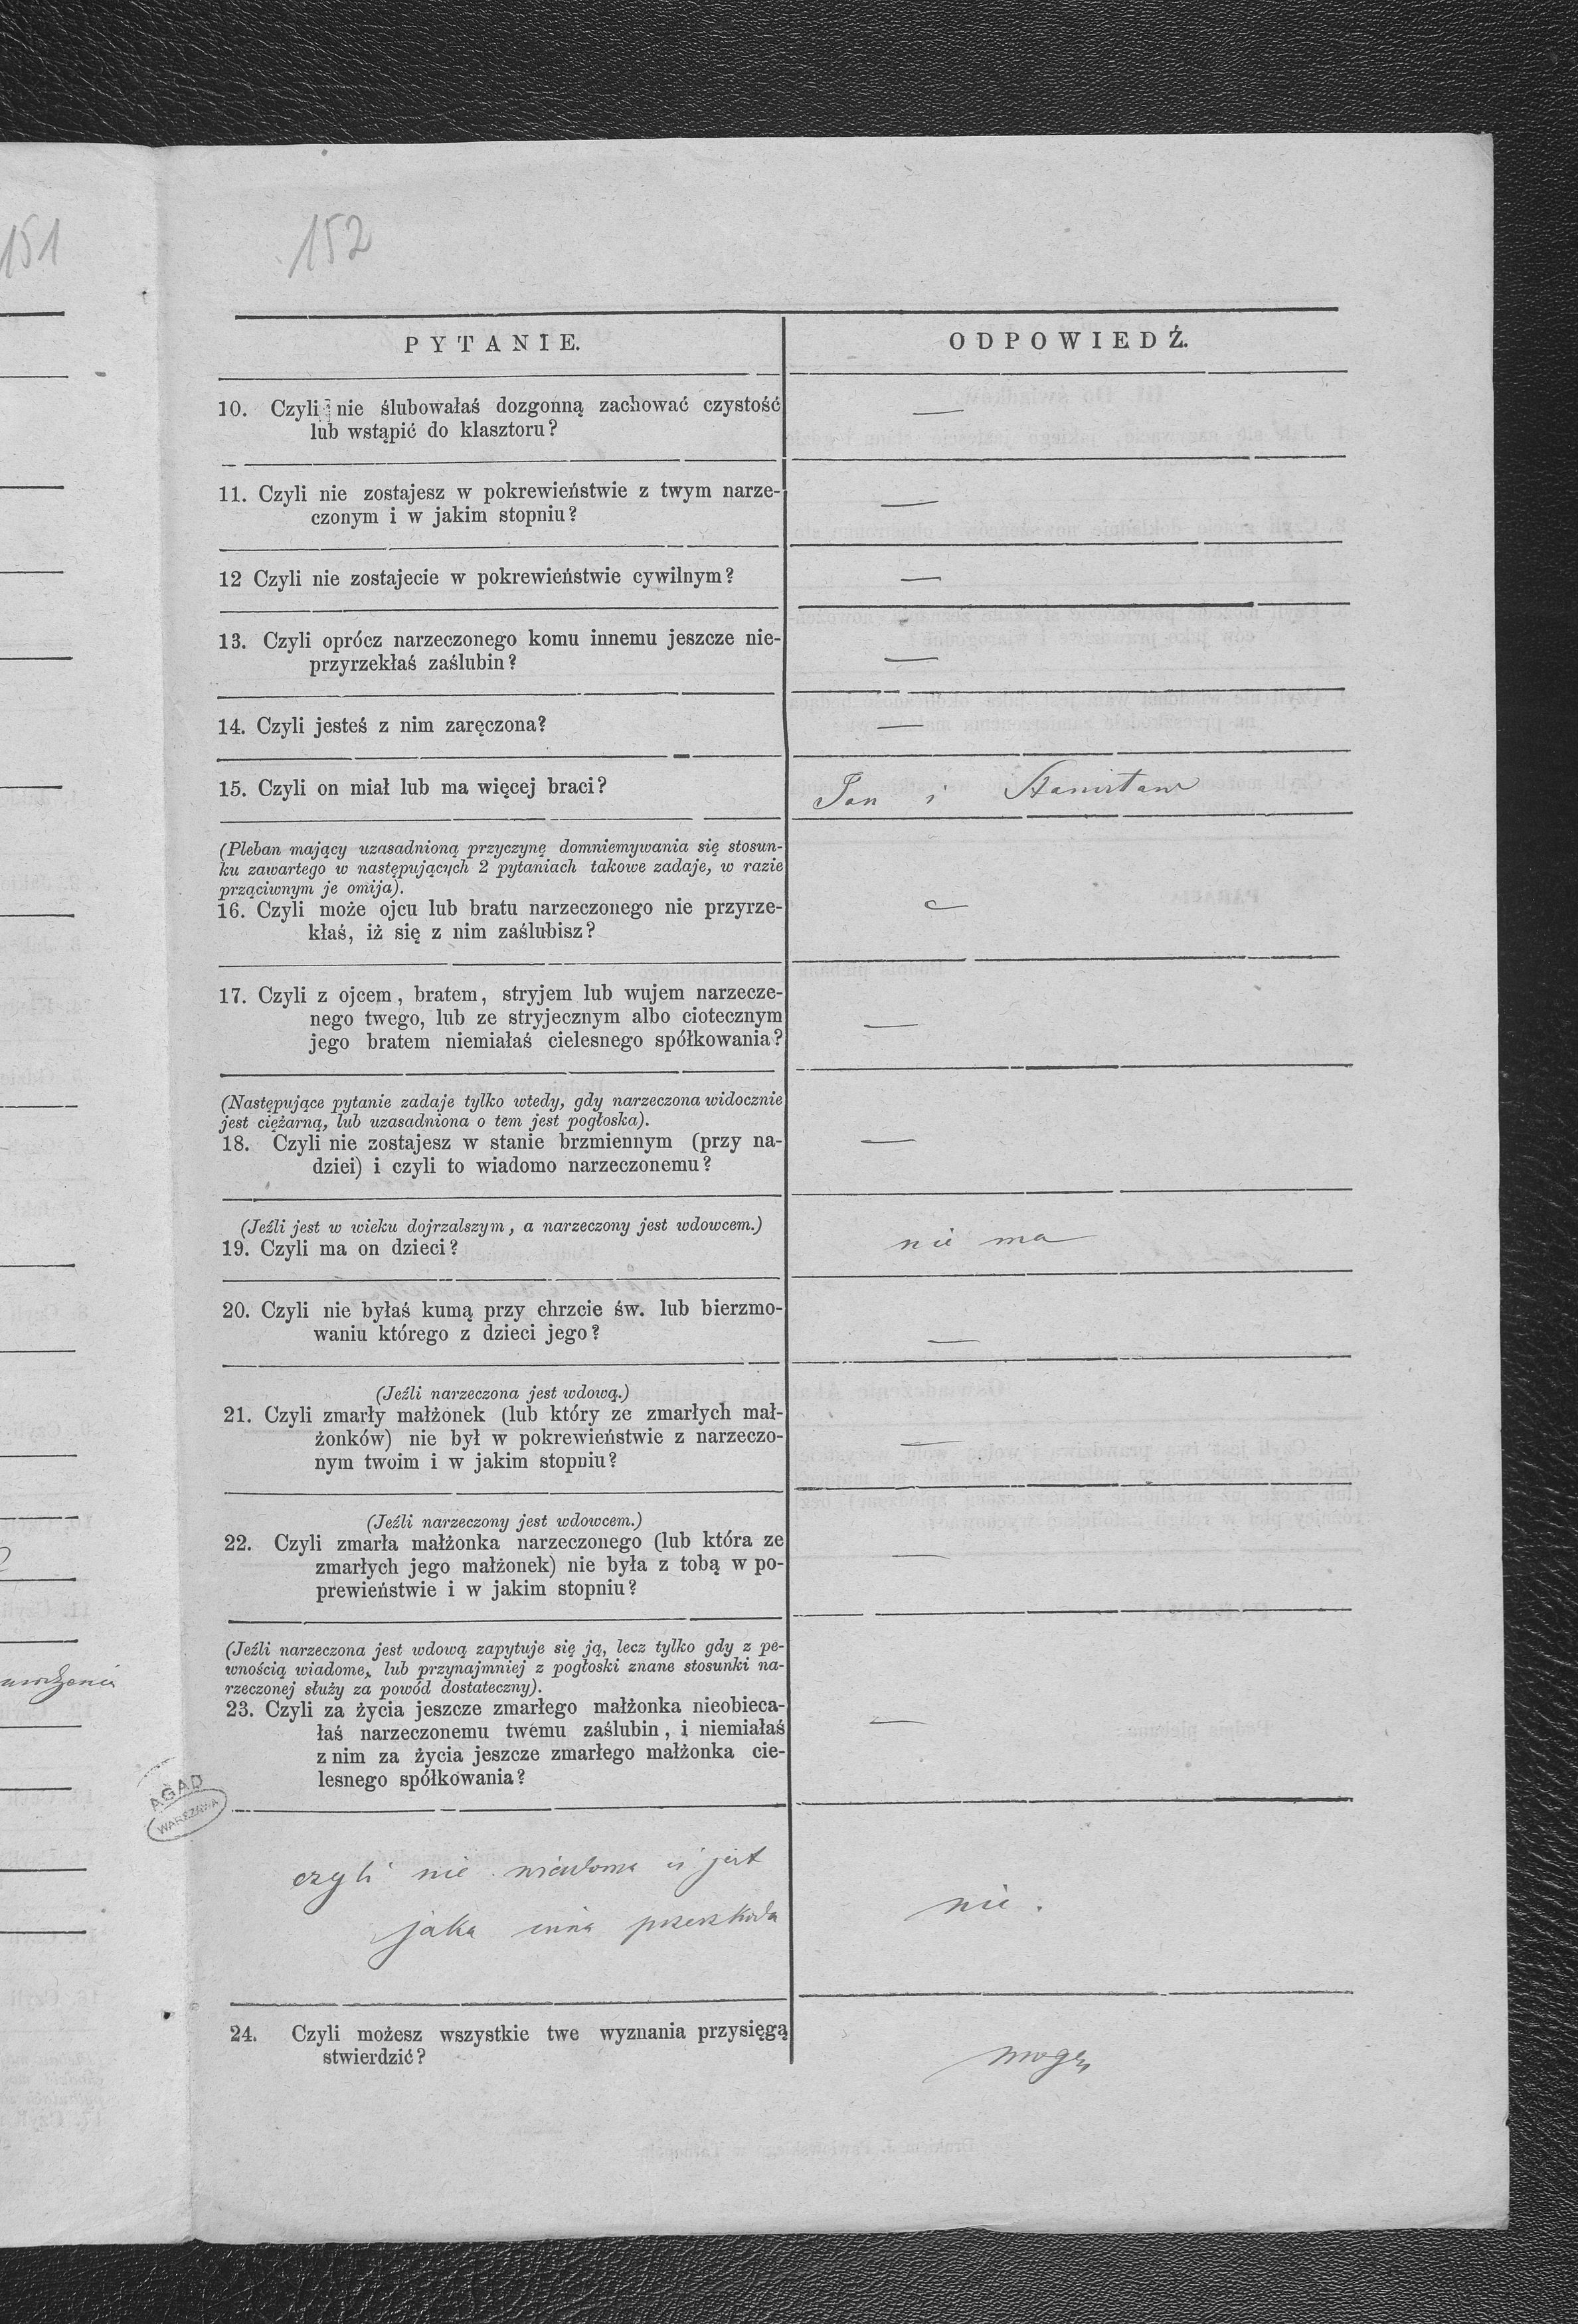 151
152
PYTANIE.
ODPOWIEDŹ.
10. Czyli nie ślubowałaś dozgonną zachować czystość
lub wstąpić do klasztoru?
—
11. Czyli nie zostajesz w pokrewieństwie z twym narze-
czonym i w jakim stopniu?
—
12 Czyli nie zostajecie w pokrewieństwie cywilnym?
—
13. Czyli oprócz narzeczonego komu innemu jeszcze nie-
przyrzekłaś zaślubin?
—
14. Czyli jesteś z nim zaręczona?
—
15. Czyli on miał lub ma więcej braci?
Jan i Stanisław
(Pleban mający uzasadnioną przyczynę domniemywania się stosun-
ku zawartego w następujących 2 pytaniach takowe zadaje, w razie
prząciwnym je omija).
16. Czyli może ojcu lub bratu narzeczonego nie przyrze-
kłaś, iż się z nim zaślubisz?
—
17. Czyli z ojcem, bratem, stryjem lub wujem narzecze-
nego twego, lub ze stryjecznym albo ciotecznym
jego bratem niemiałaś cielesnego spółkowania?
—
(Następujące pytanie zadaje tylko wtedy, gdy narzeczona widocznie
jest ciężarną, lub uzasadniona o tem jest pogłoska).
18. Czyli nie zostajesz w stanie brzmiennym (przy na-
dziei) i czyli to wiadomo narzeczonemu?
—
(Jeźli jest w wieku dojrzalszym, a narzeczony jest wdowcem.)
19. Czyli ma on dzieci?
nie ma
20. Czyli nie byłaś kumą przy chrzcie św. lub bierzmo-
waniu którego z dzieci jego?
—
(Jeźli narzeczona jest wdową.)
21. Czyli zmarły małżonek (lub który ze zmarłych mał-
żonków) nie był w pokrewieństwie z narzeczo-
nym twoim i w jakim stopniu?
—
(Jeźli narzeczony jest wdowcem.)
22. Czyli zmarła małżonka narzeczonego (lub która ze
zmarłych jego małżonek) nie była z tobą w po-
prewieństwie i w jakim stopniu?
—
(Jeźli narzeczona jest wdową zapytuje się ją, lecz tylko gdy z pe-
wnością wiadome, lub przynajmniej z pogłoski znane stosunki na-
rzeczonej służy za powód dostateczny).
23. Czyli za życia jeszcze zmarłego małżonka nieobieca-
łaś narzeczonemu twemu zaślubin, i niemiałaś
z nim za życia jeszcze zmarłego małżonka cie-
lesnego spółkowania?
—
AGAD
WARSZAWA
czyli nie wiadoma ci jest
jaka inna przeszkoda
nie.
24. Czyli możesz wszystkie twe wyznania przysięgą
stwierdzić?
mogę